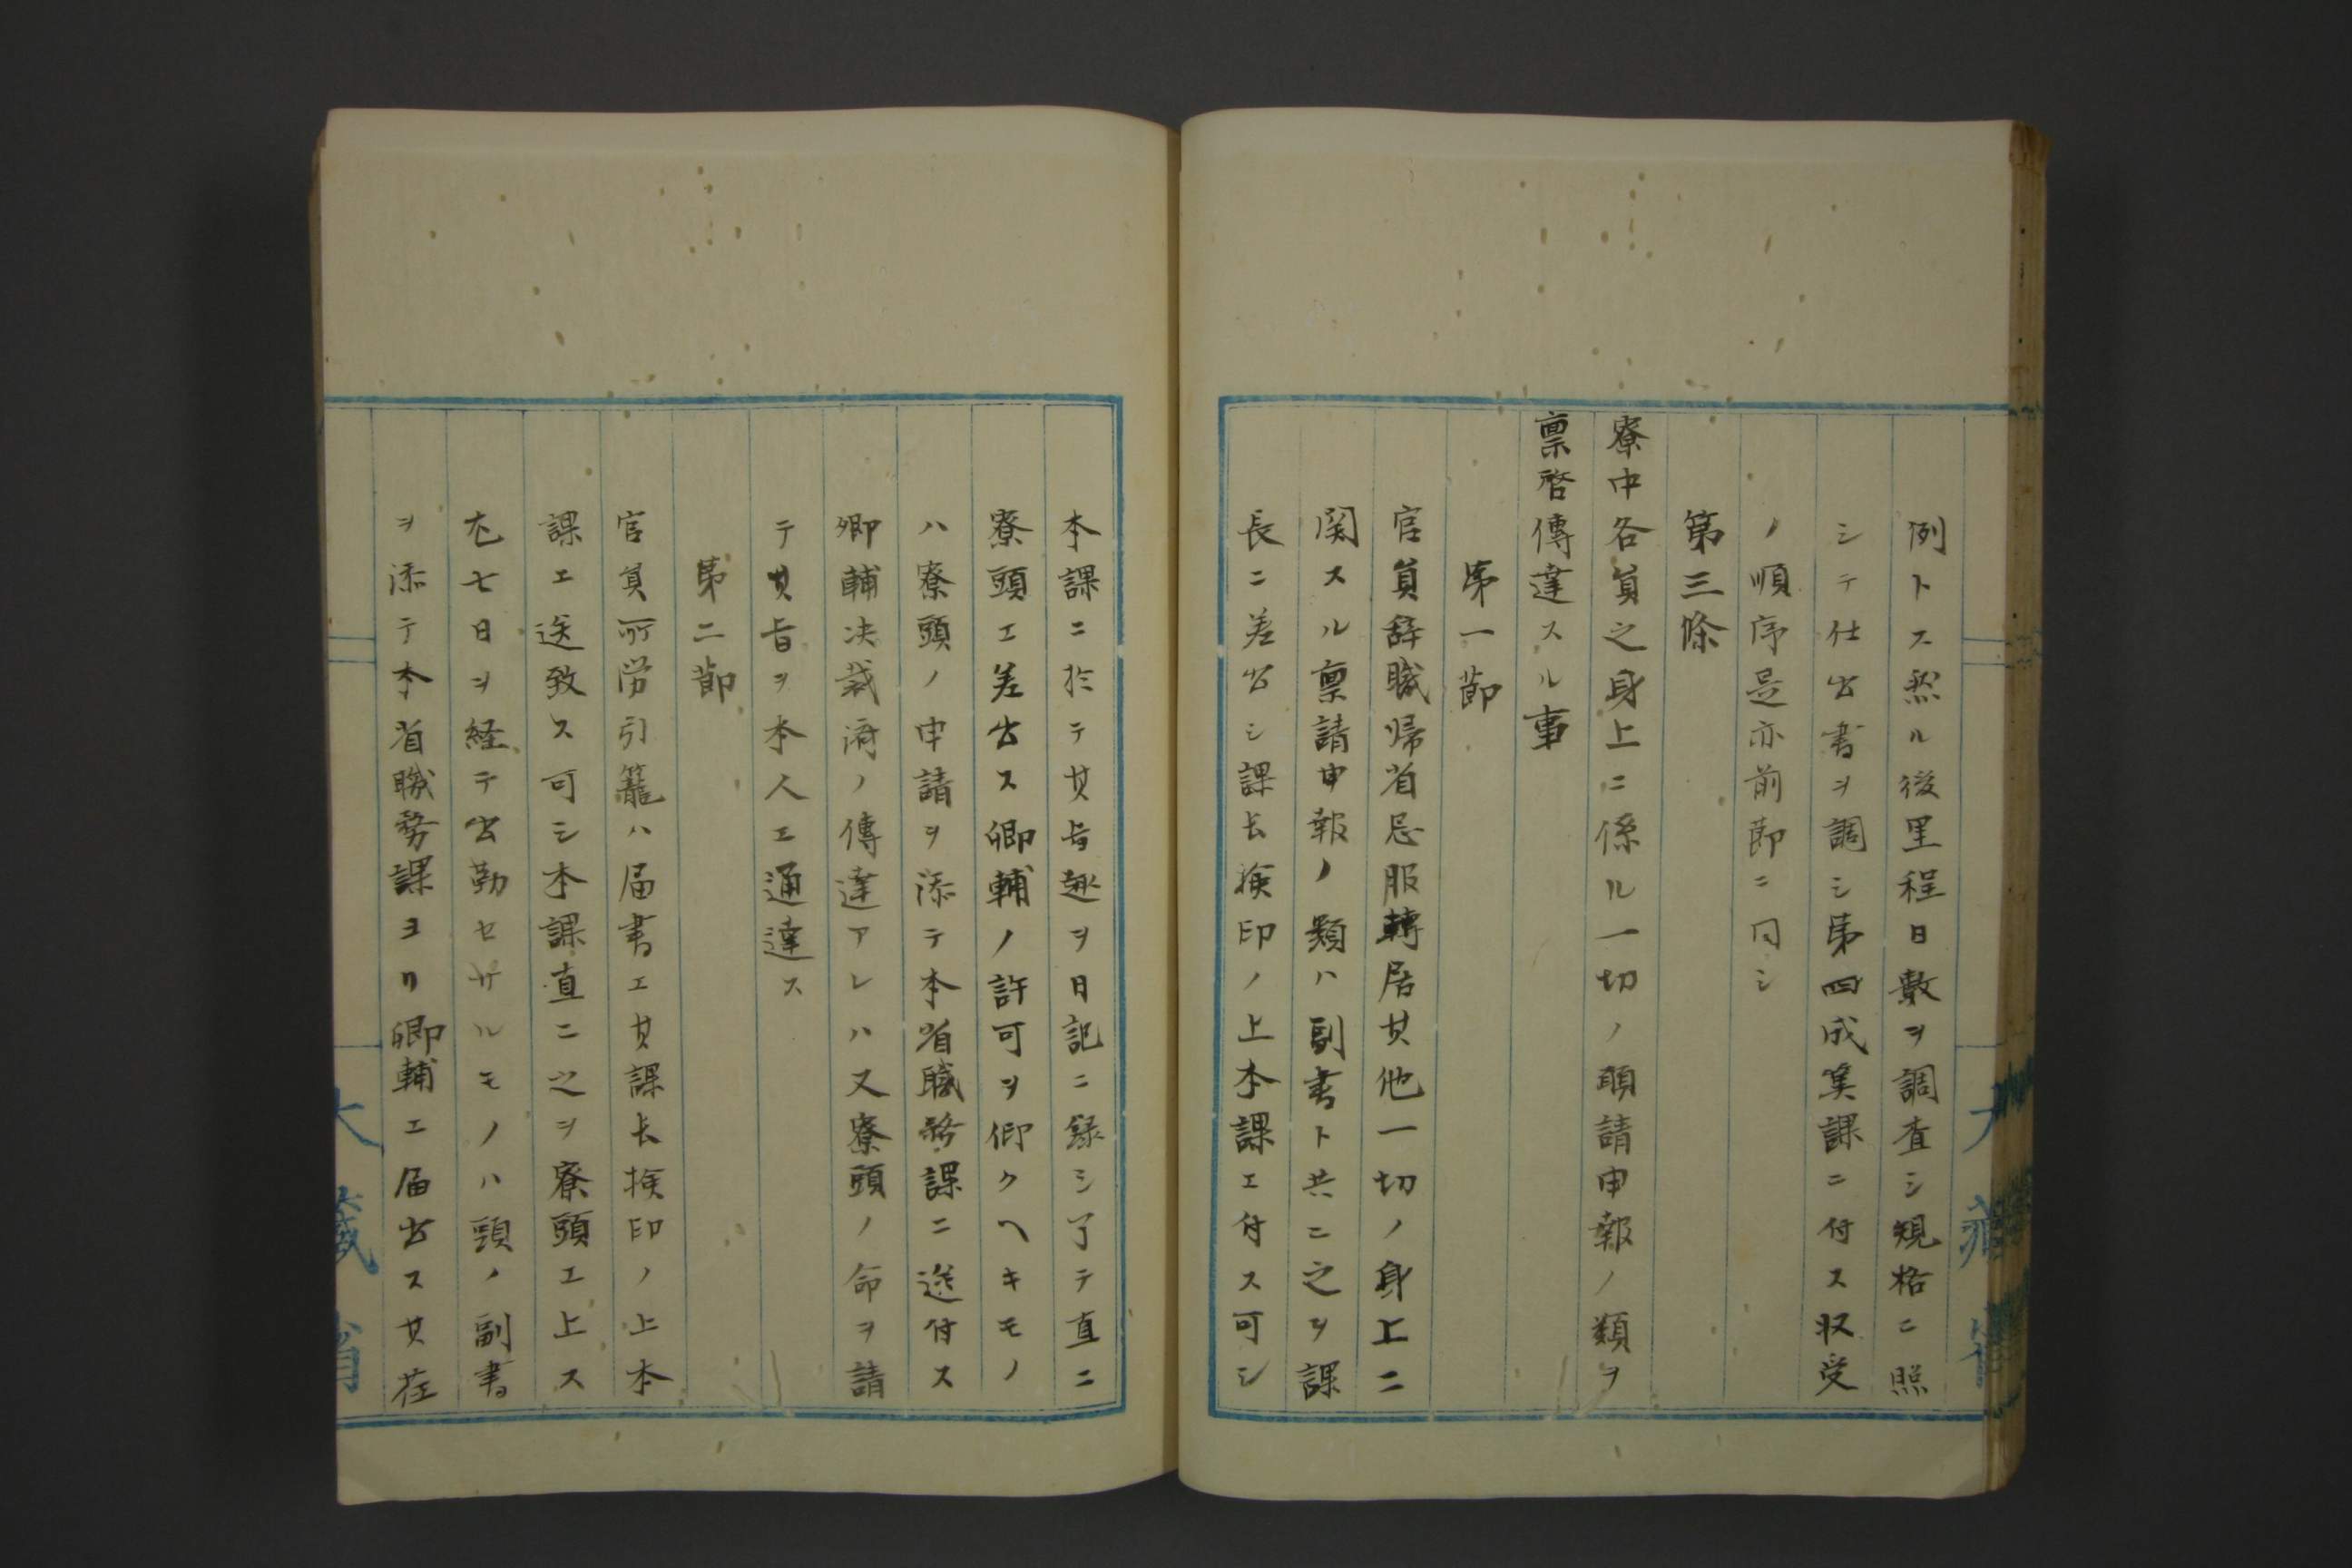 例トス然ル後里程日數ヲ調査シ規格ニ照
シテ仕出書ヲ調シ第四成算課ニ付ス収受
ノ順序是亦前節ニ同シ
第三條
寮中各員之身上ニ係ル一切ノ願請申報ノ類ヲ
稟啓傳達スル事
第一節
官員辞職帰省忌服轉居其他一切ノ身上ニ
関スル稟請申報ノ類ハ副書ト共ニ之ヲ課
長ニ差出シ課長検印ノ上本課エ付ス可シ
本課ニ於テ其旨趣ヲ日記ニ録シ了テ直ニ
寮頭エ差出ス卿輔ノ許可ヲ仰クヘキモノ
ハ寮頭ノ申請ヲ添テ本省職務課ニ送付ス
卿輔决裁済ノ傳達アレハ又寮頭ノ命ヲ請
テ其旨ヲ本人エ通達ス
第二節
官員所労引籠ハ届書エ其課長検印ノ上本
課エ送致ス可シ本課直ニ之ヲ寮頭エ上ス
尤七日ヲ経テ出勤セサルモノハ頭ノ副書
ヲ添テ本省職務課ヨリ卿輔エ届出ス其在
大藏省